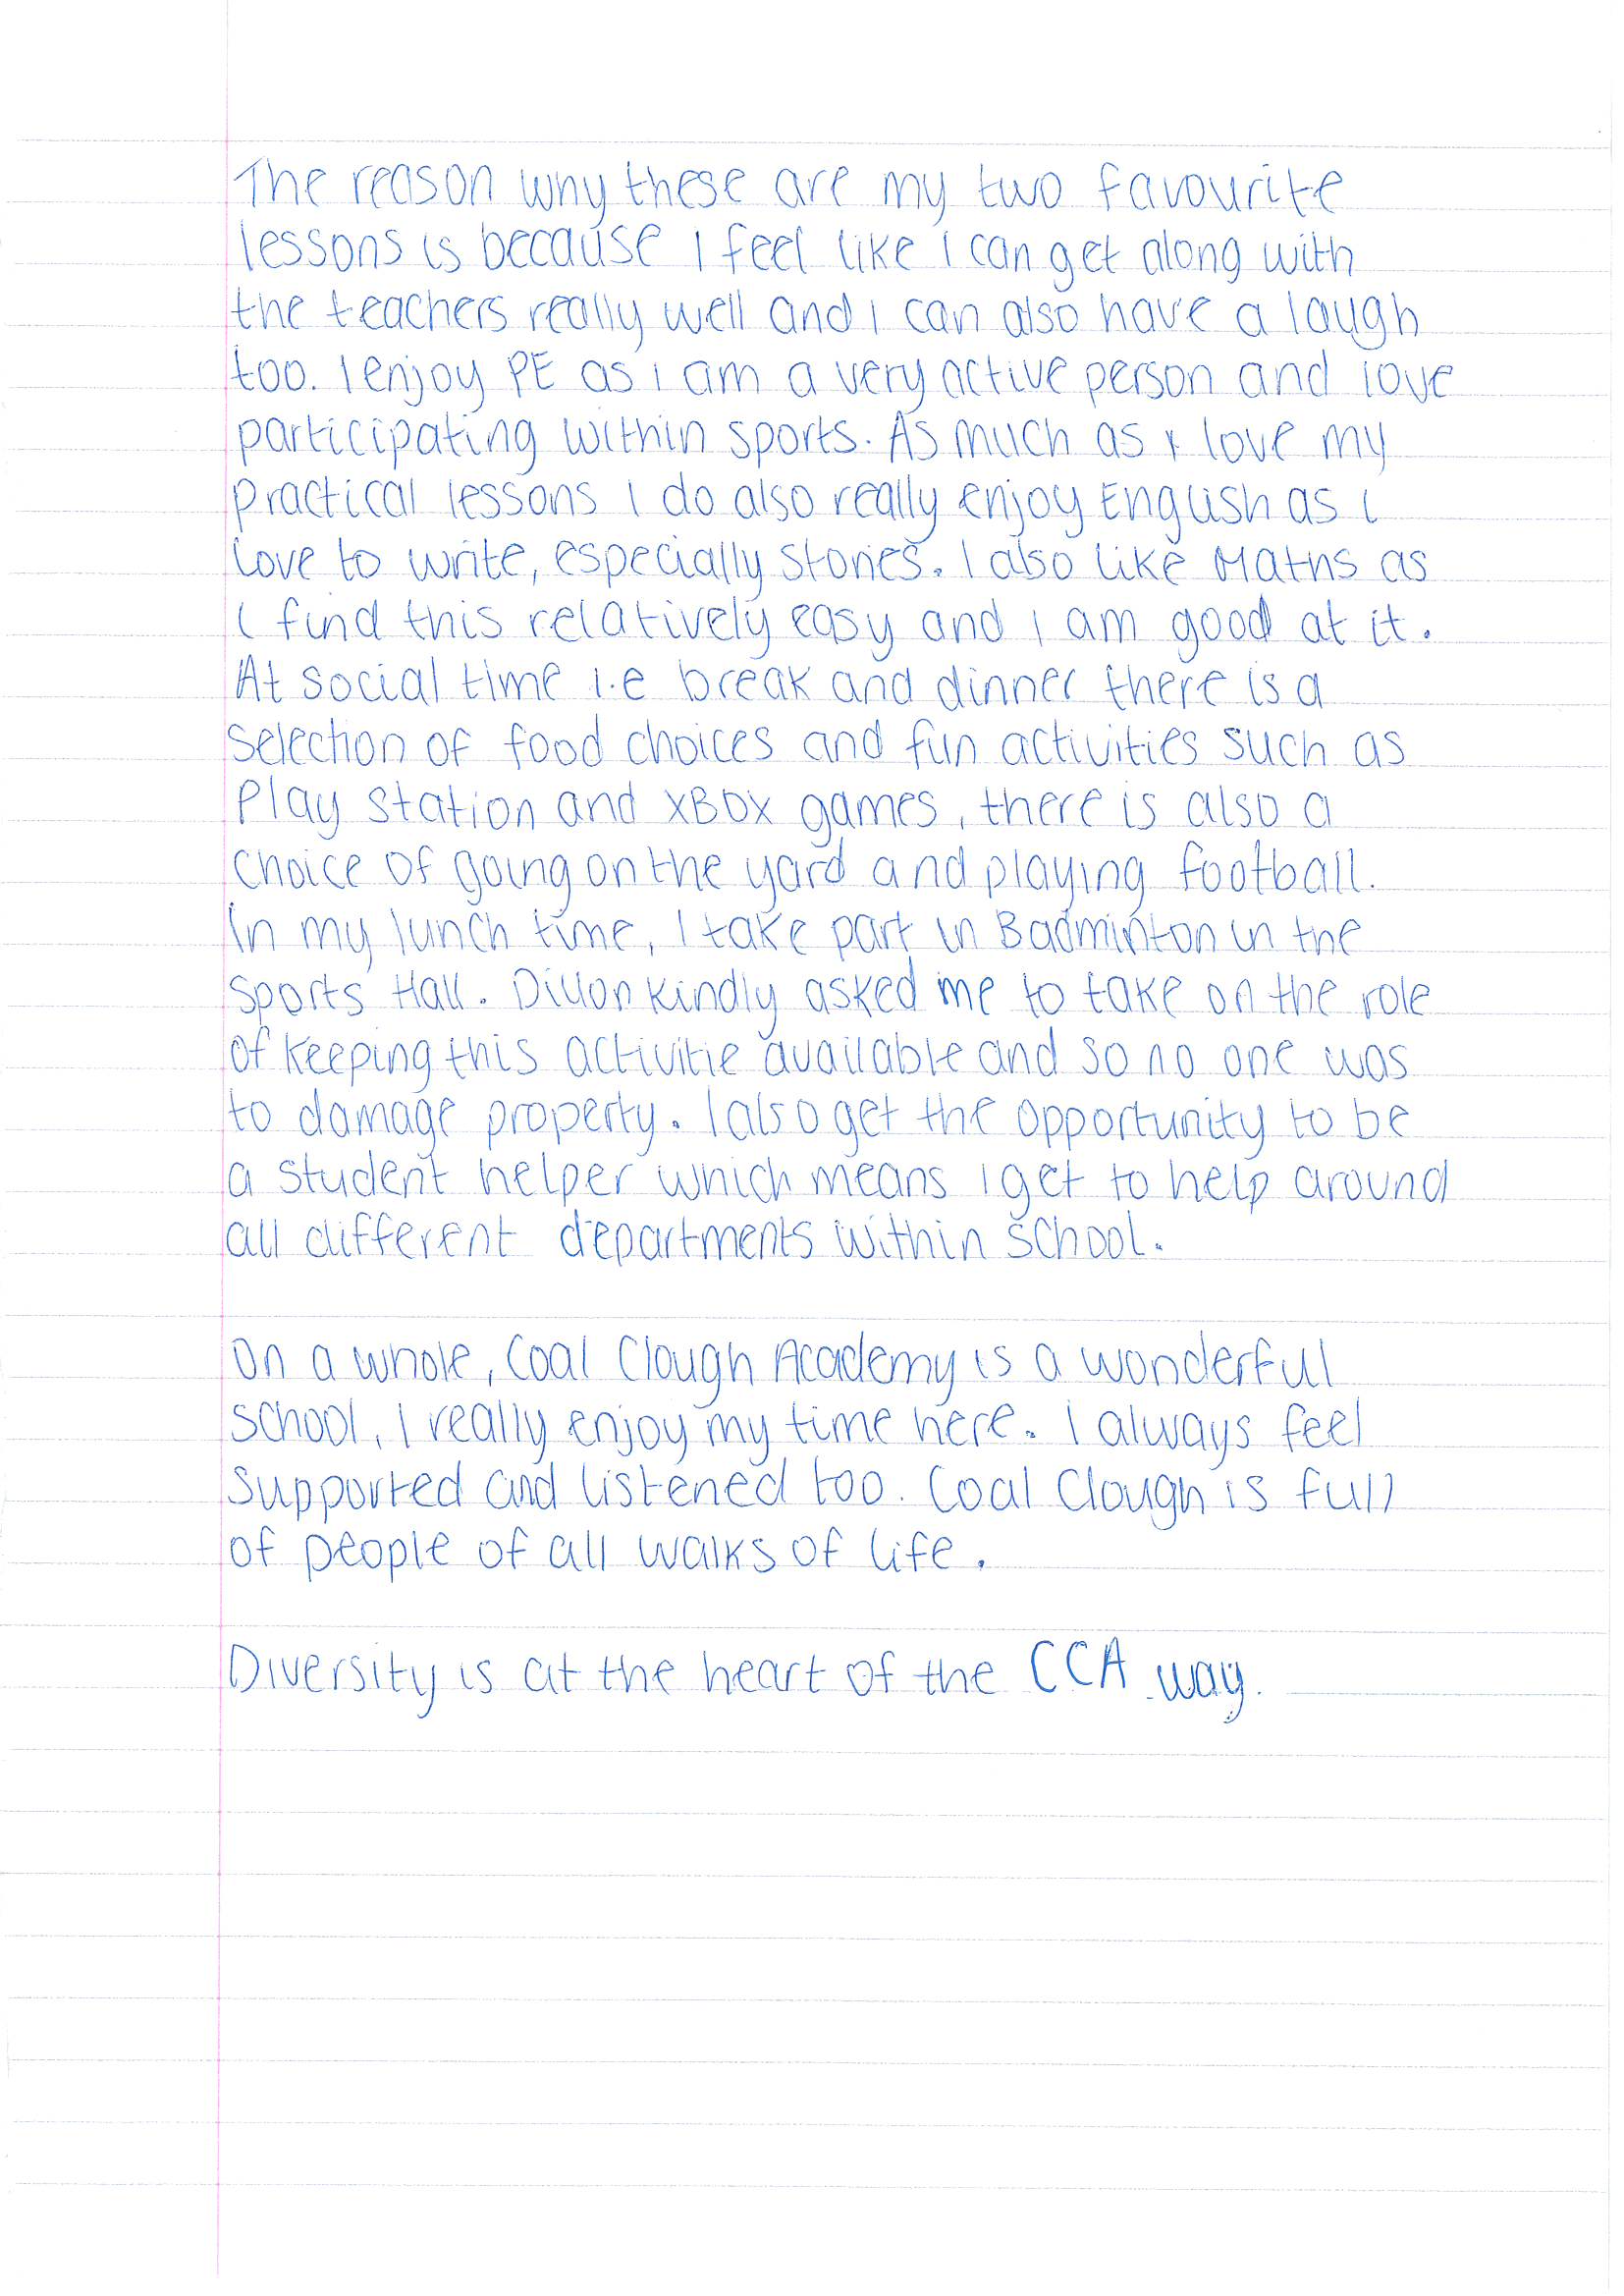 The reason why these are my two favourite
lessons is because I feel like i can get along with
the teachers really well and i can also have a laugh
too. I enjoy PE as i am a very active person and love
participating within sports. As much as I love my
practical lessons I do also really enjoy English as i
love to write, especially stories. I also like Maths as
i find this relatively easy and i am good at it.
At social time i.e break and dinner there is a
selection of food choices and fun activities such as
Play station and XBOX games, there is also a
choice of going on the yard and playing football.
In my lunch time, I take part in Badminton in the
sports Hall. Dillon kindly asked me to take on the role
of keeping this activitie available and so no one was
to damage property. I also get the opportunity to be
a student helper which means i get to help around
all different departments within school.
On a whole, Coal Clough Academy is a wonderful
school, I really enjoy my time here. I always feel
supported and listened too. Coal Clough is full
of people of all walks of life.
Diversity is at the heart of the CCA way.